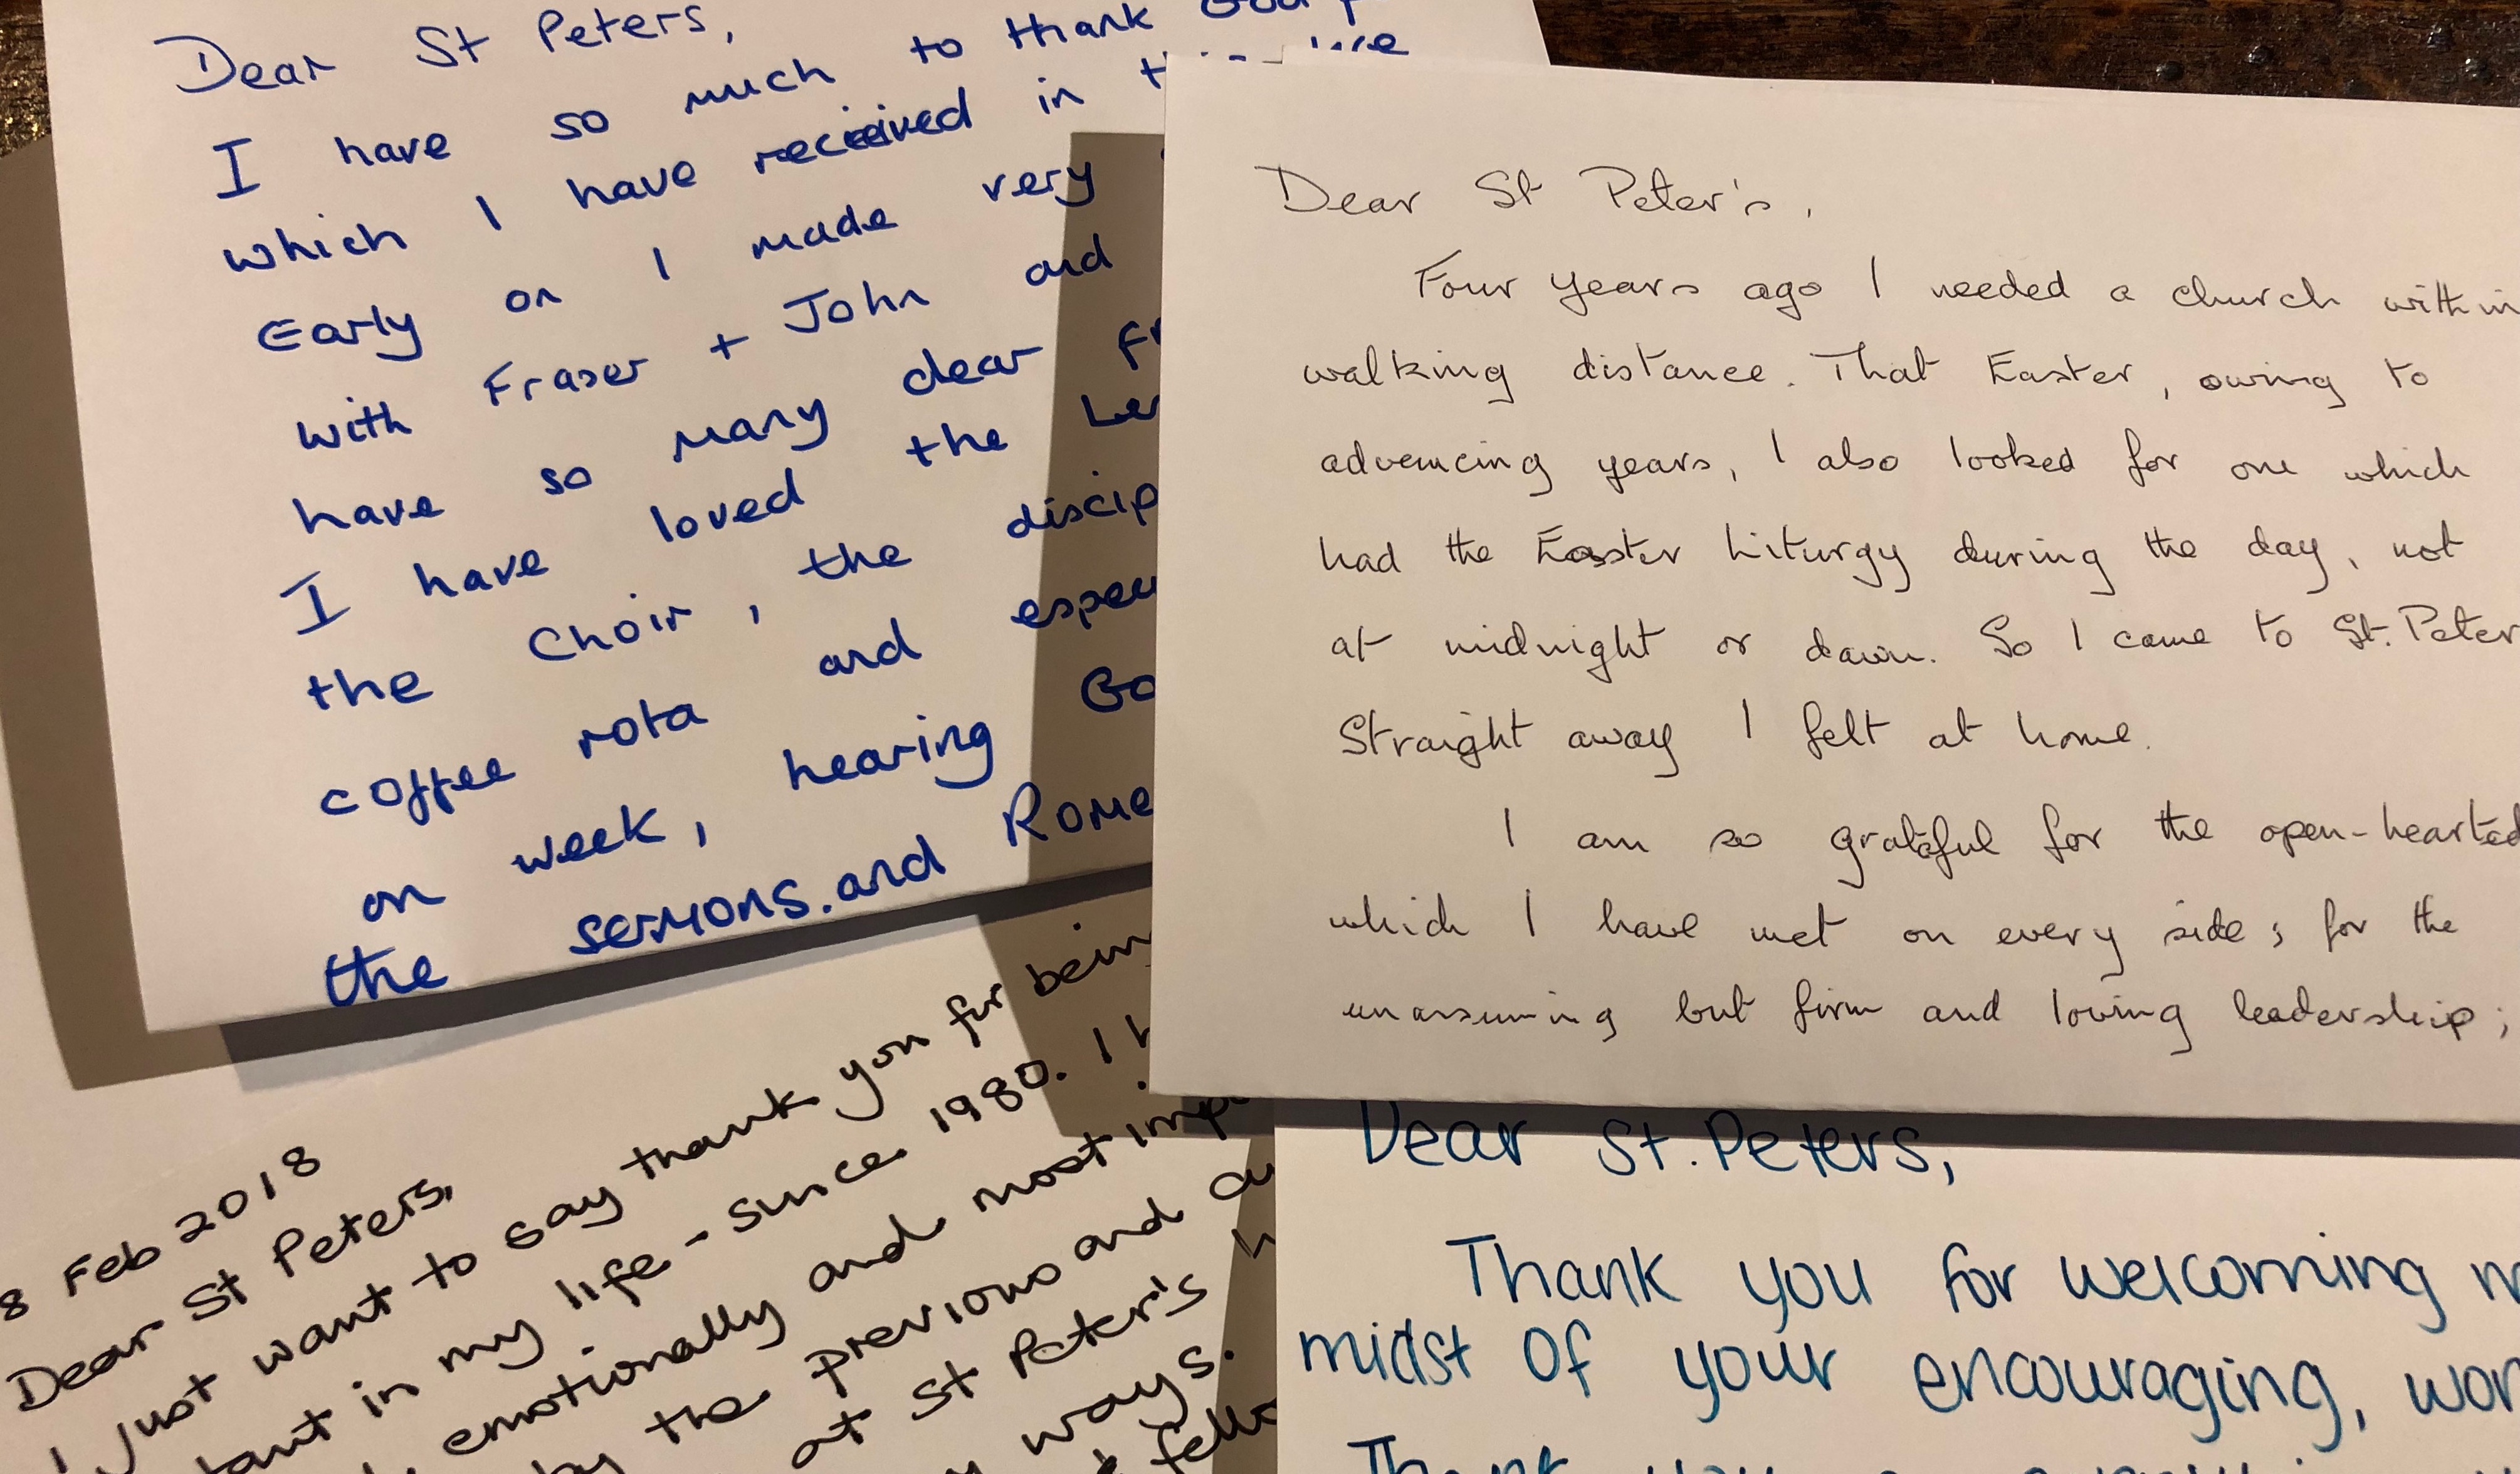 Dear St Peters,
I have so much to thank
which I have received in
Early on I made very
with Fraser + John and
have so many dear
I have loved the
the Choir, the
coffee rota and
on week, hearing
the sermons. and
Dear St Peter's,
Four years ago I needed a church within
walking distance. That Easter, owing to
advancing years, I also looked for one which
had the Easter Liturgy during the day, not
at midnight or dawn. So I came to St. Peter
Straight away I felt at home.
I am so grateful for the open-hearted
which I have met on every side; for the
unassuming but firm and loving leadership;
8 Feb 2018
Dear St Peters,
I just want to say thank you for being
in my life - since 1980. I
emotionally and most
by the previous and
at St Peter's
ways.
Dear St. Peters,
Thank you for welcoming
midst of your encouraging,
Thank you